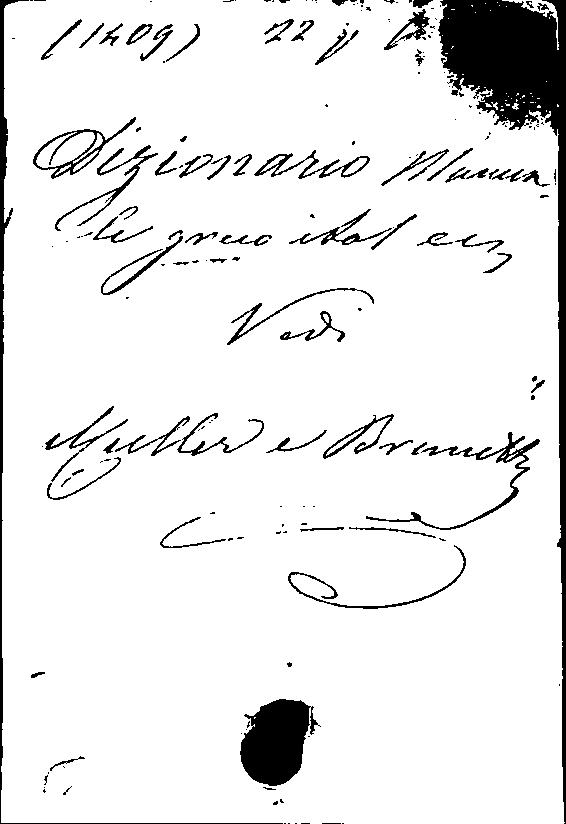 (1209) 22 y
Dizionario Manua-
le greco ital ecc
Vedi
Muller e Brunetti